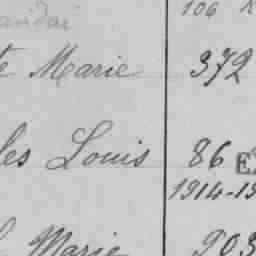 106
te Marie 372
les Louis 86 E
1914-19
Marie 903